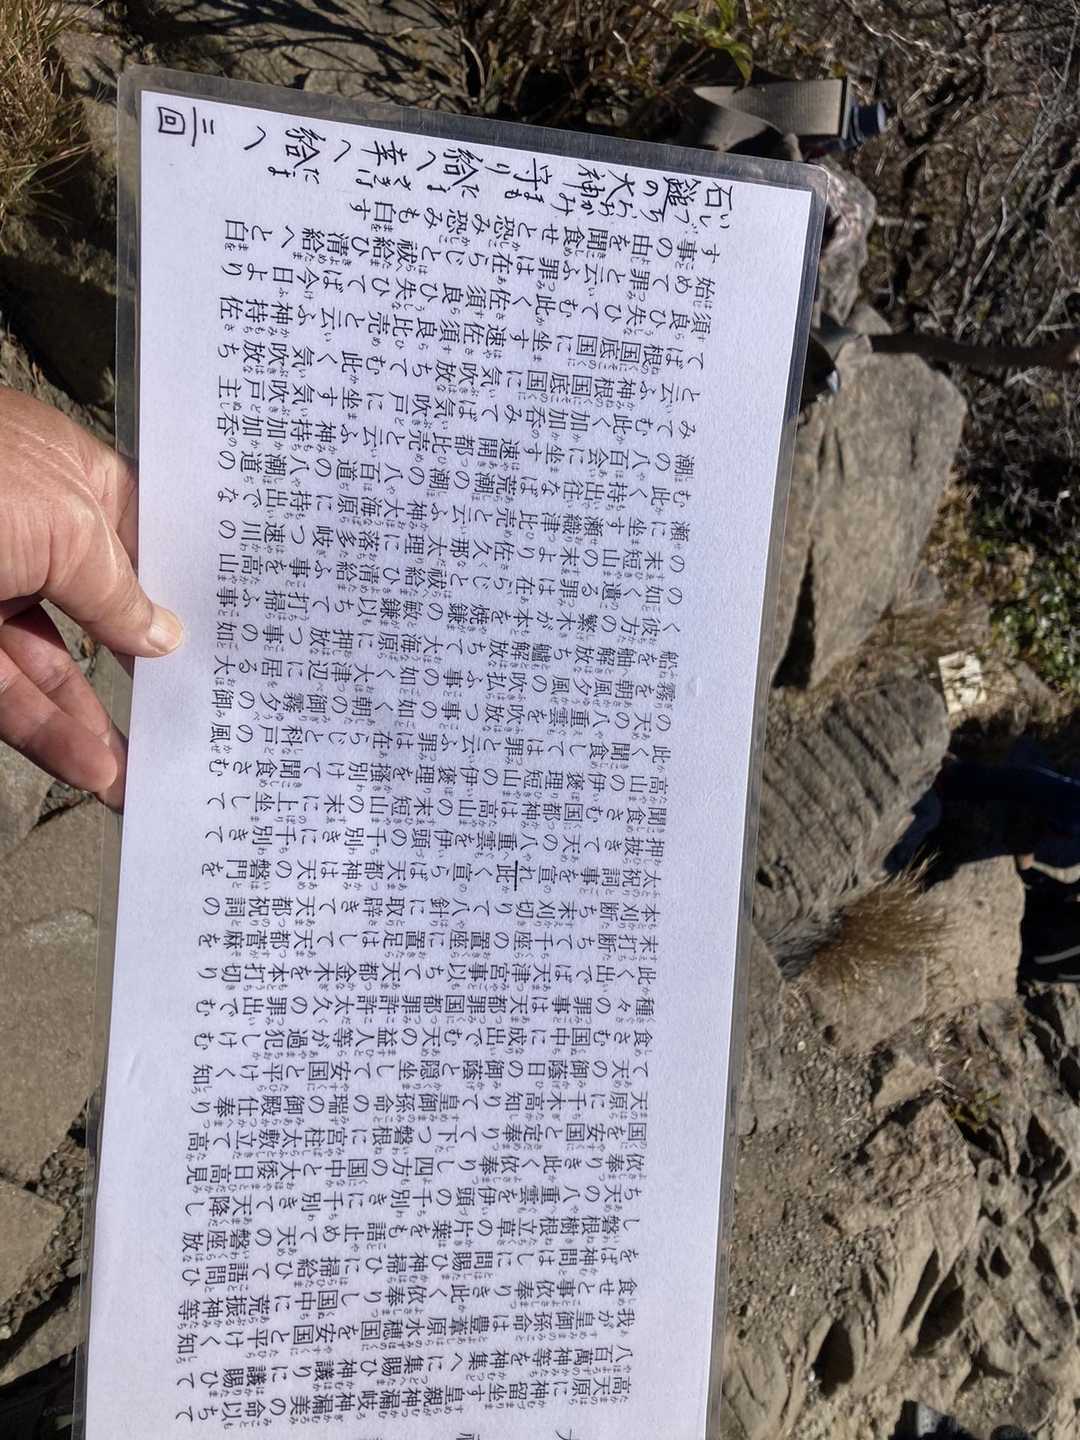 高天原に神留坐す皇親神漏岐神漏美の命以ちて
八百萬神等を神集へに集賜ひ神議りに議賜ひて
我が皇御孫命は豊葦原水穂国を安国と平けく知
食せと事依奉りき此く依奉りし国中に荒振神等
をば神問はしに問賜ひ神掃ひに掃給ひて語問ひ
し磐根樹根立草の片葉をも語止めて天の磐座放
ち天の八重雲を伊頭の千別きに千別きて天降し
依奉りき此く依奉りし四方の国中と大倭日高見
国を安国と定奉りて下つ磐根に宮柱太敷立て高
天原に千木高知りて皇御孫命の瑞の御殿仕奉り
て天の御蔭日の御蔭と隠坐して安国と平けく知
食さむ国中に成出でむ天の益人等が過犯しけむ
種々の罪事は天都罪国都罪許許太久の罪出でむ
此く出でば天津宮事以ちて天都金木を本打切り
末打断ちて千座の置座に置足はして天都菅麻を
本刈断ち末刈切りて八針に取辟きて天都祝詞の
太祝詞事を宣れ此く宣らば天都神は天の磐門を
押披きて天の八重雲を伊頭の千別きに千別きて
聞食さむ国都神は高山の末短山の末に上坐して
高山の伊褒理短山の伊褒理を掻別けて聞食さむ
此く聞食しては罪と云ふ罪は在らじと科戸の風
の天の八重雲を吹放つ事の如く朝の御霧夕の御
霧を朝風夕風の吹払ふ事の如く大津辺に居る大
船を舳解放ち艫解放ちて大海原に押放つ事の如
く彼方の繁木が本を焼鎌の敏鎌以ちて打掃ふ事
の如く遺る罪は在らじと祓給ひ清給ふ事を高山
の末短山の末より佐久那太理に落多岐つ速川の
瀬に坐す瀬織津比売と云ふ神大海原に持出でな
む此く持出往なば荒潮の潮の八百道の八潮道の
潮の八百会に坐す速開都比売と云ふ神持加加呑
みてむ此く加加呑みてば気吹戸に坐す気吹戸主
と云ふ神根国底国に気吹放ちてむ此く気吹放ち
てば根国底国に坐す速佐須良比売と云ふ神持佐
須良ひ失ひてむ此く佐須良ひ失ひてば今日より
始めて罪と云ふ罪は在らじと祓給ひ清給へと白
す事の由を聞食せと恐み恐みも白す
石鎚の大神守り給へ幸へ給へ 三回